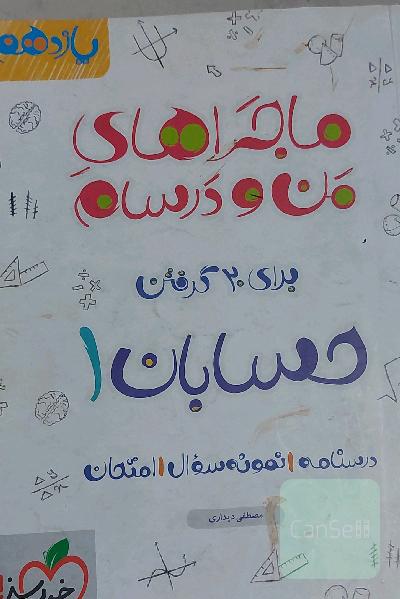 یازدهم
ماجراهای
من و درسام
برای ۲۰ گرفتن
حسابان ۱
درسنامه | نمونه سؤال | امتحان
مصطفی دیداری
CanSell
Δy
Δx
Δy
Δx